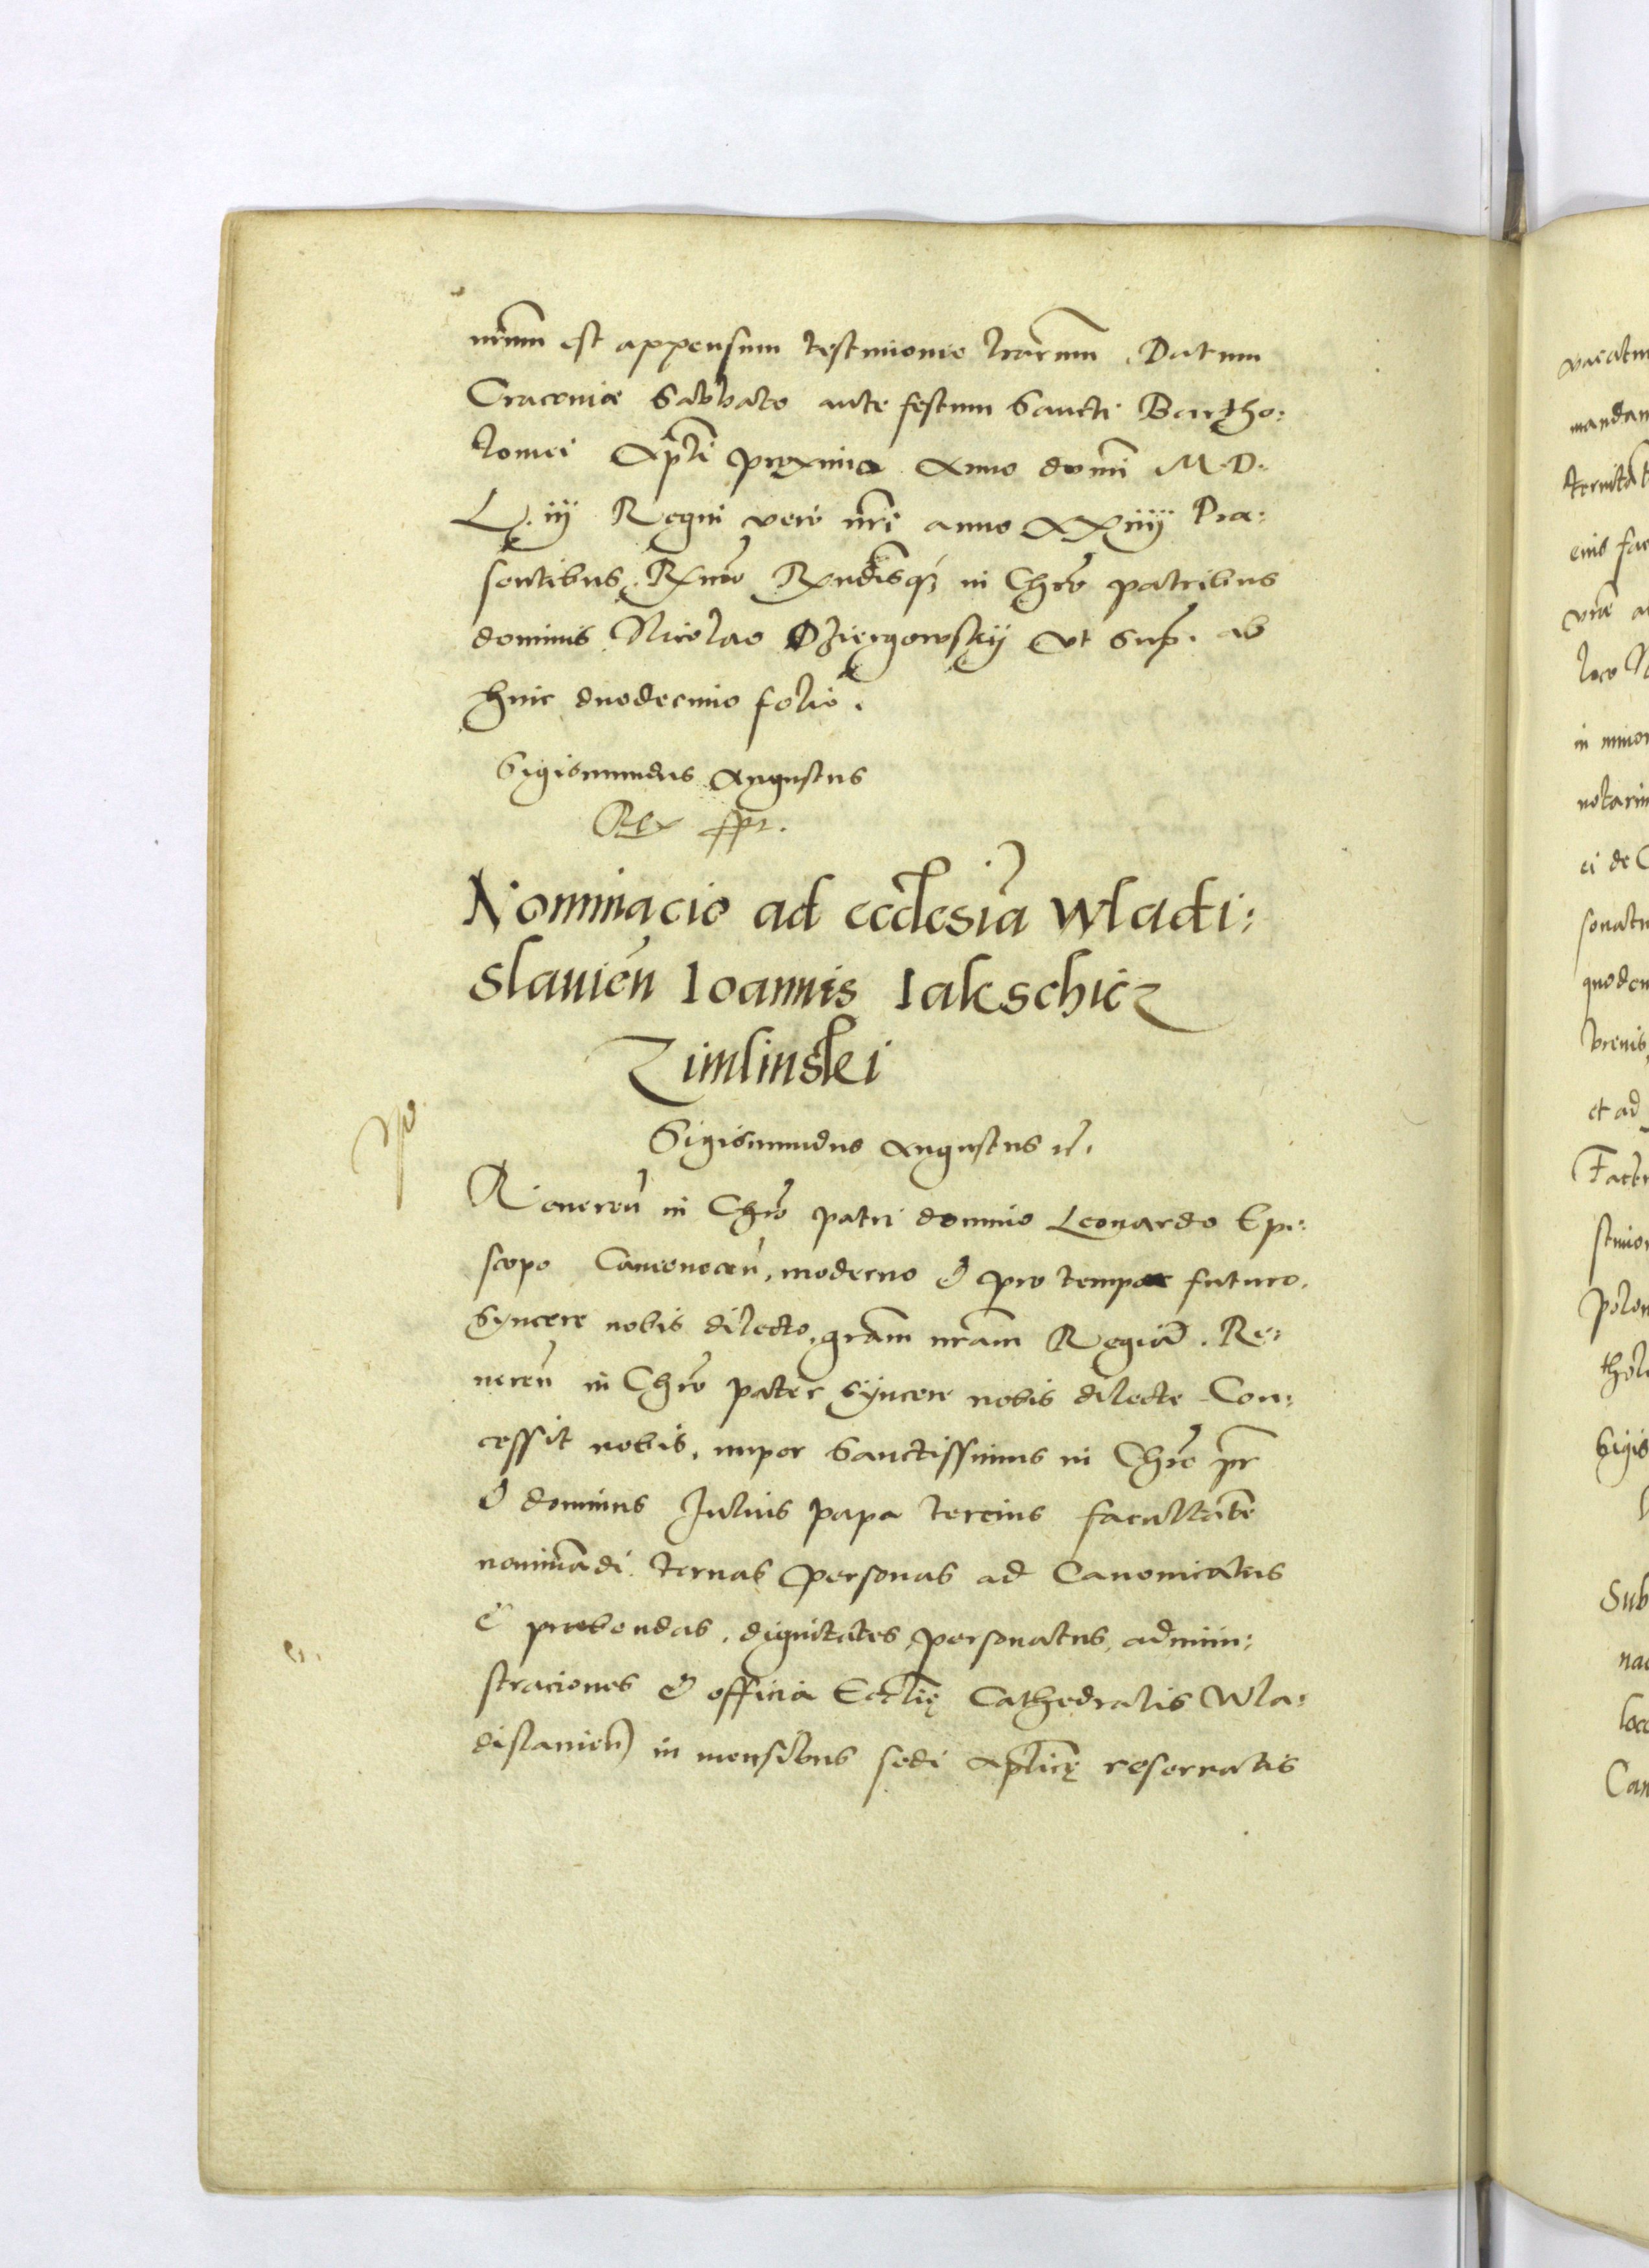 nr̃um est appensum testimonio l̃rarum. Datum
Cracoviæ Sabbato ante festum Sancti Bartho:
lomei Ap̃li proximo Anno domĩ M.D.
L.iij Regni vero nr̃i anno XXiiij Præ:
sentibus Rx̃mo Rx̃ndisq; in Chr̃o patribus
dominis Nicolao Dziergowskij vt sup. ab
hinc duodecimo folio.
Sigismundus Augustus
Rex sst.
Nominacio ad ecclesiã Wladi:
slauieñ Ioannis Iakschicz
Zimlinskei
Sigismundus Augustus zc̃.
Reuereñ in Chr̃o patri domino Leonardo Epi:
scopo Cameneceñ, moderno & pro tempore futuro.
Syncere nobis dilecto, gr̃am nr̃am Regiã. Re:
uereñ in Chr̃o pater syncere nobis dilecte Con:
cessit nobis, nuper Sanctissimus in Chr̃o pr̃
& dominus Julius papa tercius facultatẽ
nominãdi ternas personas ad Canonicatus
& prebendas, dignitates, personatus, admini:
straciones & officia Eccl̃ię Cathedralis Wla:
dislauieñ in mensibus sedi Ap̃licę reseruatis
vacatu
mandan
ternitat
eius fac
loco N
in minor
notariu
ei de C
sonatu
quodcu
breuis
et ad
Polon
Sigis
Sub
loco
Can